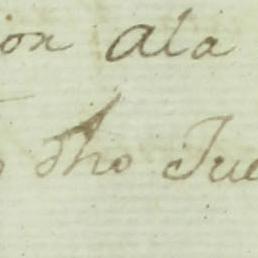 ion ala
dho Jue